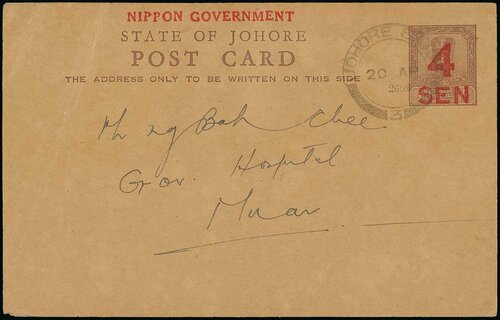 NIPPON GOVERNMENT
STATE OF JOHORE
POST CARD
THE ADDRESS ONLY TO BE WRITTEN ON THIS SIDE
JOHORE
20 AP
2602
3
4
SEN
ng Bah Chee
Gov. Hospital
Muar